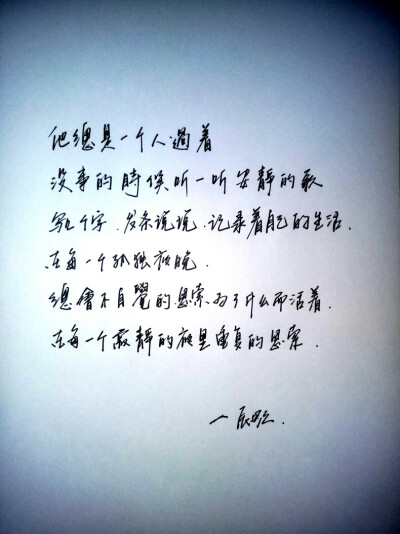 他總是一个人過着
没事的時候听一听安靜的歌
写几个字.发条说说.记录着自己的生活.
在每一个孤独夜晚.
總會不自覺的思索为了什么而活着.
在每一个寂靜的夜里重复的思索.
一辰